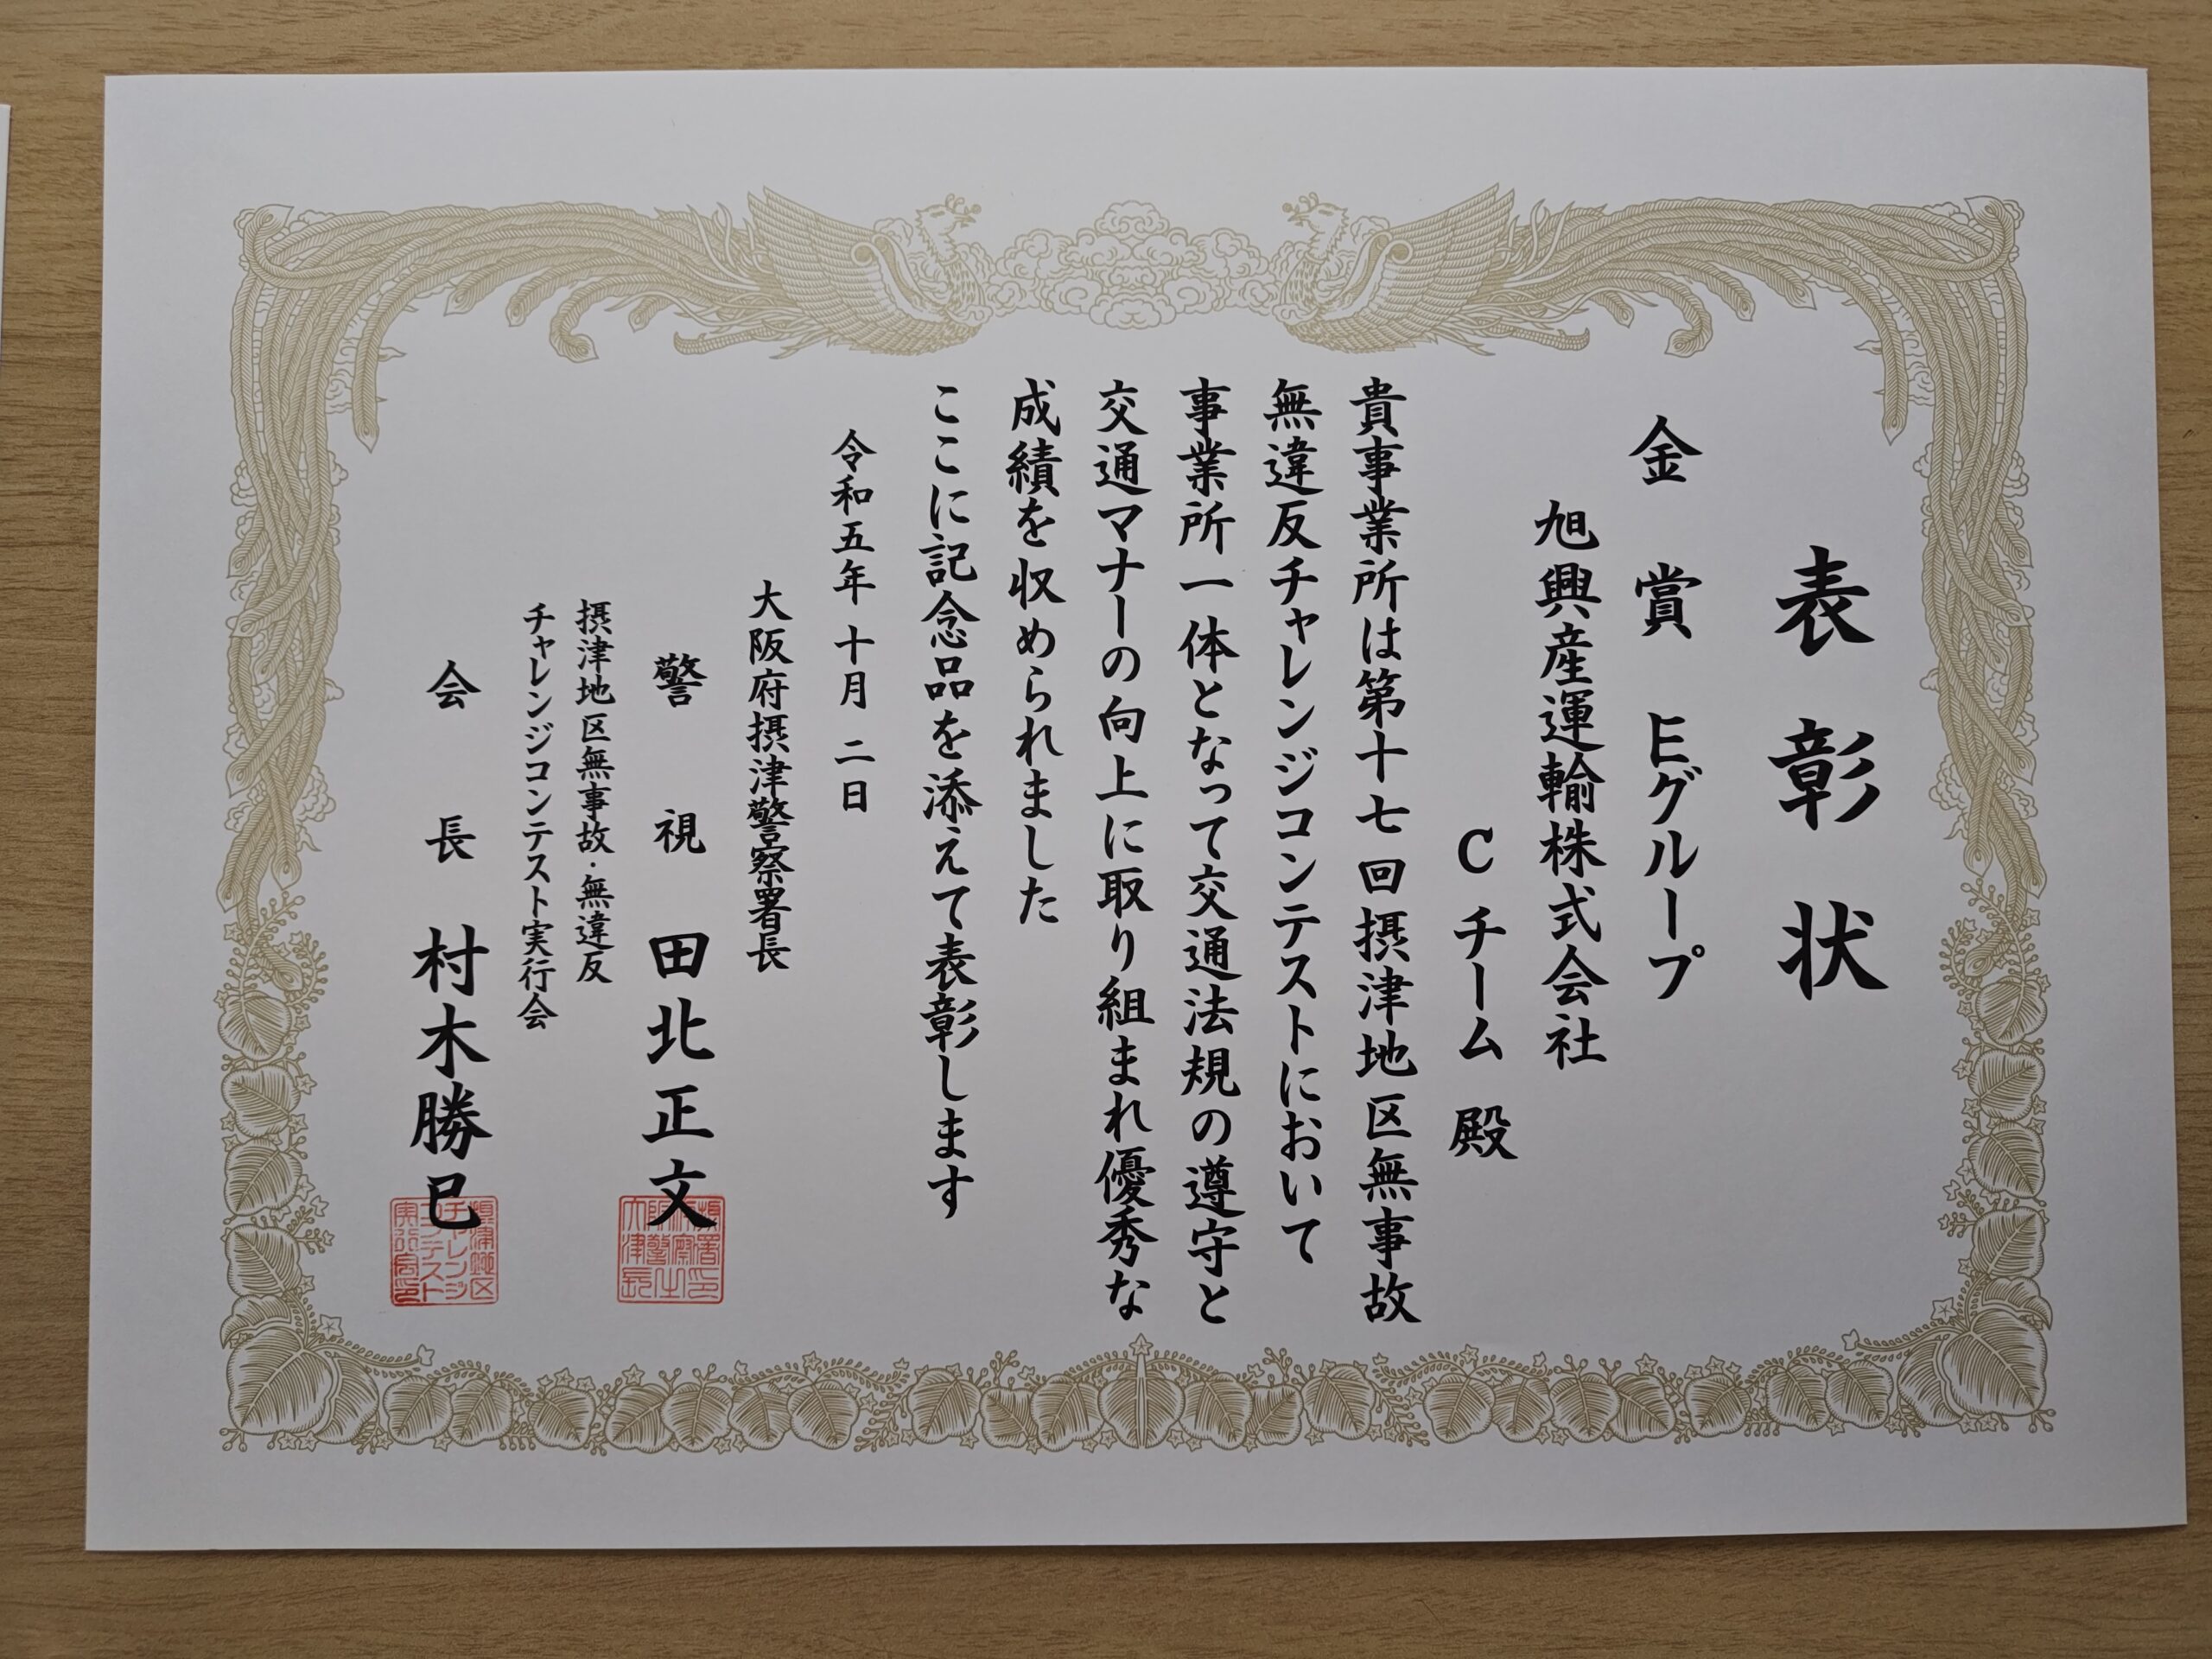 表彰状
金賞 Eグループ
旭興産運輸株式会社
Cチーム 殿
貴事業所は第十七回摂津地区無事故
無違反チャレンジコンテストにおいて
事業所一体となって交通法規の遵守と
交通マナーの向上に取り組まれ優秀な
成績を収められました
ここに記念品を添えて表彰します
令和五年 十月 二日
大阪府摂津警察署長
警視 田北正文
摂津地区無事故・無違反
チャレンジコンテスト実行会
会長 村木勝巳
摂津地区
チャレンジ
コンテスト